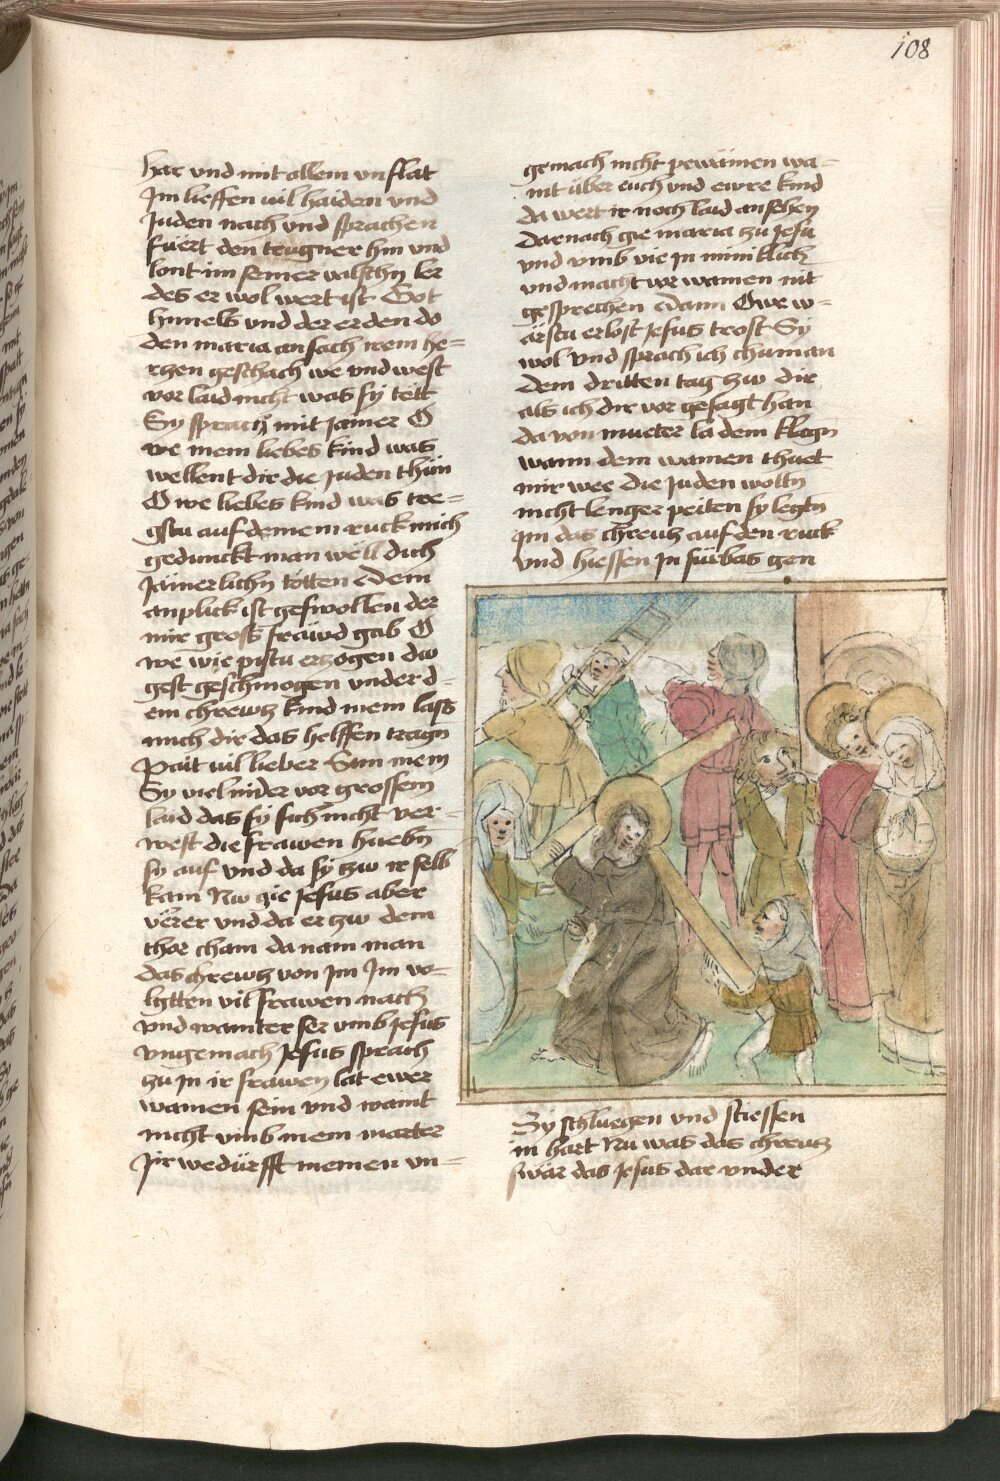 108
har vnd mit allem vnflat
Im lieffen vil haiden vnd
Juden nach vnd sprachen
fuert den trugner hin vnd
lont im seiner valschn ler
des er wol wert ist Got
himels vnd der erden do
den maria an sach irem he=
rzen geschach we vnd west
vor laid nicht was sy tett
Sy sprach mit Jamer O
we mein liebes kind was
wellent dir die Juden thun
O we liebes kind was tre=
gstu auf deinem ruck mich
gedunckt man well dich
Jämerlichn totten Dein
anplick ist geswollen der
mir gross fräwd gab O
we wie pistu erzogen dw
gest geschmogen vnder d=
em chrewtz kind mein lass
mich dir das helffen tragn
Pait vil lieber Sun mein
Sy viel nider vor grossem
laid das sy sich nicht ver=
west die frawen huebn
sy auf vnd da sy zw ir selb
kam Nw gie Jesus aber
verer vnd da er zw dem
thor cham da nam man
das chrewtz von im Im vo=
lgtten vil frawen nach
vnd wainter ser vmb Jesus
vngemach Jesus sprach
zu in ir frawen lat ewer
wainen sein vnd waint
nicht vmb mein marter
Jr wedürfft meinen vn=
gemach nicht pewainen wa=
int über euch vnd ewre kind
da wert ir noch laid an sehen
Darnach gie maria zu Jesu
vnd vmb vie in miniklich
vnd macht vor wainen nit
gesprechen dann Owe w=
ärstu erlost Jesus trost Sy
wol vnd sprach ich chum an
dem dritten tag zw dir
als ich dir vor gesagt han
da von mueter la dein klagn
wann dein wainen thuet
mir wee Die Juden woltn
nicht lenger peiten sy legtn
im das chreutz auf den ruck
vnd hiessen in fürbas gen
Sy schluegen vnd stiessen
in hart Nu was das chreutz
swär das Jesus dar vnder